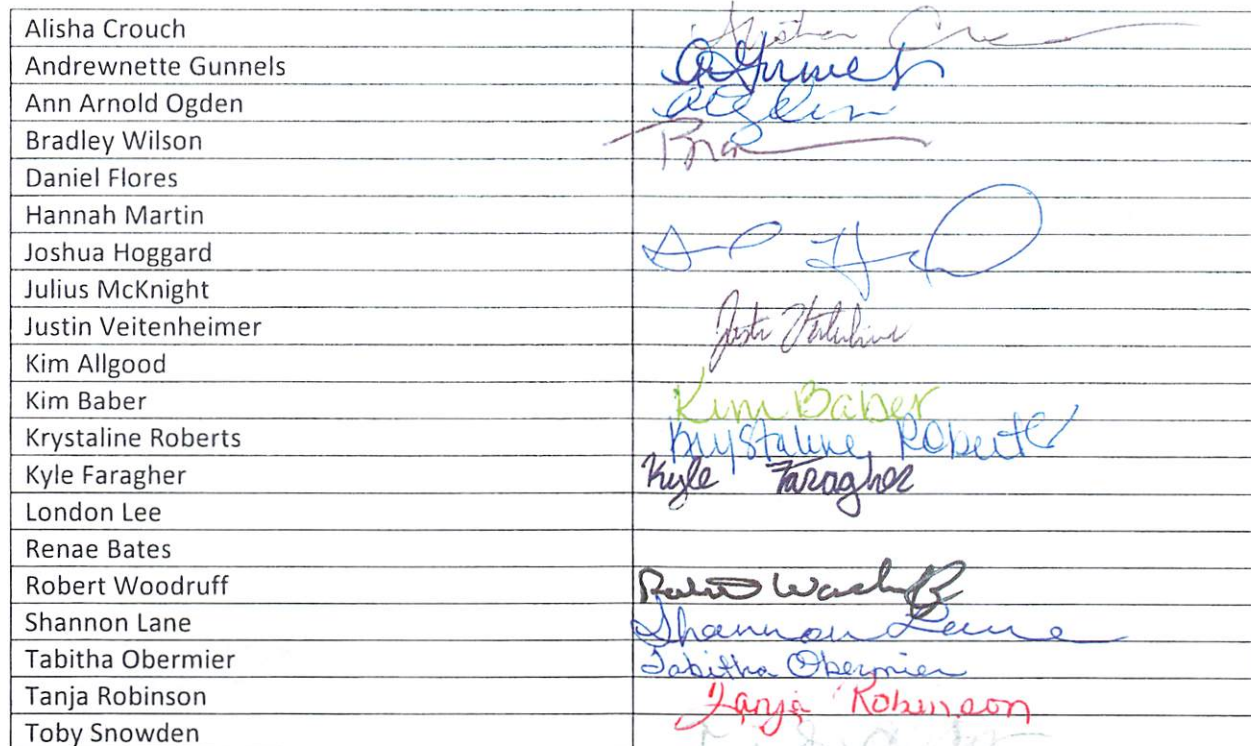 Alisha Crouch
Andrewnette Gunnels
Ann Arnold Ogden
Bradley Wilson
Daniel Flores
Hannah Martin
Joshua Hoggard
Julius McKnight
Justin Veitenheimer
Kim Allgood
Kim Baber Kim Baber
Krystaline Roberts Krystaline Roberts
Kyle Faragher Kyle Faragher
London Lee
Renae Bates
Robert Woodruff
Shannon Lane Shannon Lane
Tabitha Obermier Tabitha Obermier
Tanja Robinson Tanja Robinson
Toby Snowden